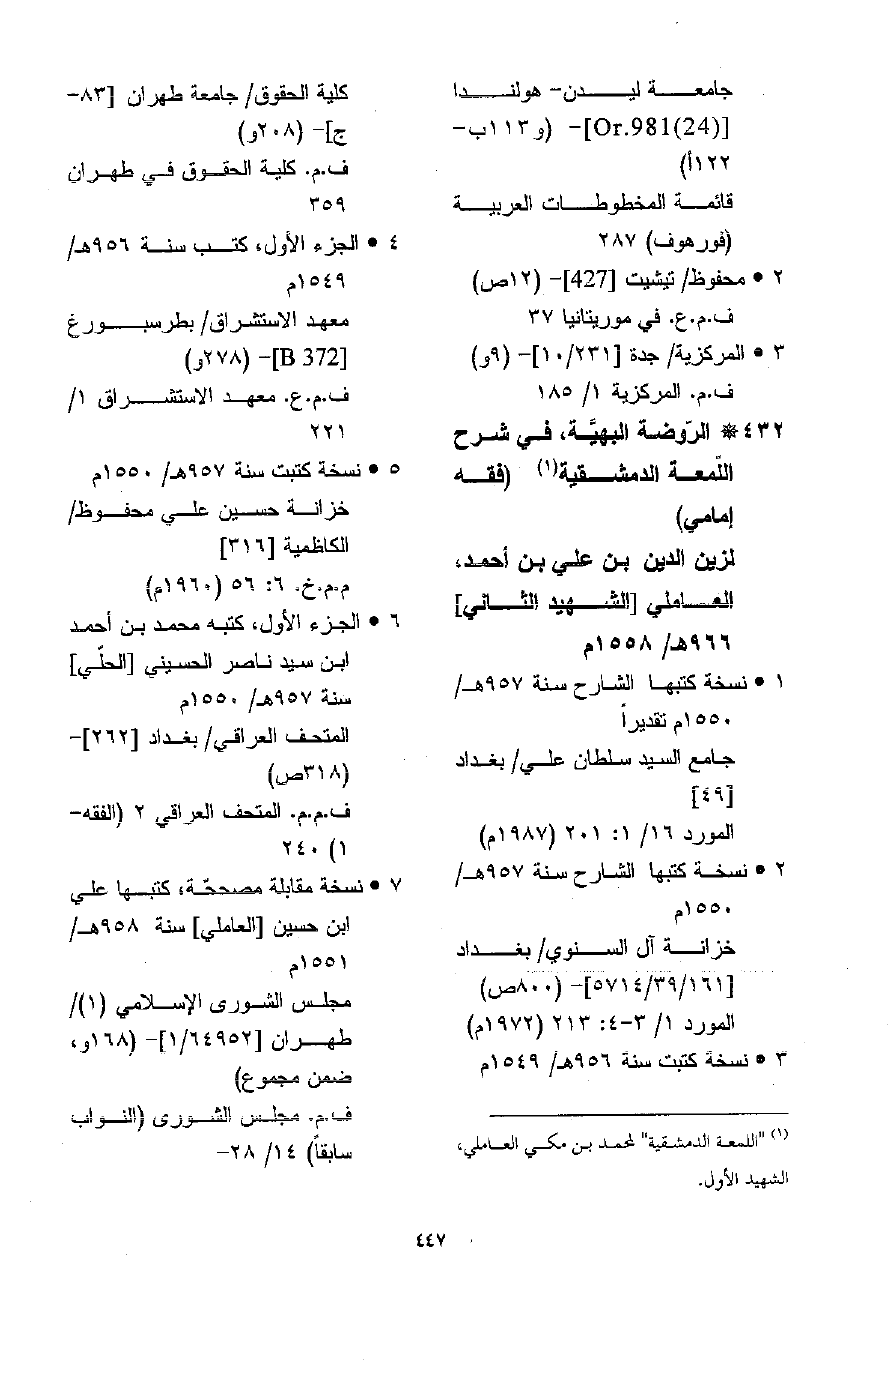 جامعة ليدن- هولندا
[Or.981(24)]- (و١١٣ب-
١٢٢أ)
قائمة المخطوطات العربية
(فورهوف) ٢٨٧
٢ • محفوظ/ تيشيت [427]- (١٢ص)
ف.م.ع. في موريتانيا ٣٧
٣ • المركزية/ جدة [١٠/٢٣١]- (٩و)
ف.م. المركزية ١/ ١٨٥
٤٣٢* الرّوضة البهيَّة، في شرح
اللّمعة الدمشقية(١) (فقه
إمامي)
لزين الدين بن علي بن أحمد،
العاملي [الشهيد الثاني]
٩٦٦هـ/ ١٥٥٨م
١ • نسخة كتبها الشارح سنة ٩٥٧هـ/
١٥٥٠م تقديراً
جامع السيد سلطان علي/ بغداد
[٤٩]
المورد ١٦/ ١: ٢٠١ (١٩٨٧م)
٢ • نسخة كتبها الشارح سنة ٩٥٧هـ/
١٥٥٠م
خزانة آل السنوي/ بغداد
[٥٧١٤/٣٩/١٦١]- (٨٠٠ص)
المورد ١/ ٣-٤: ٢١٣ (١٩٧٢م)
٣ • نسخة كتبت سنة ٩٥٦هـ/ ١٥٤٩م
(١) "اللمعة الدمشقية" لمحمد بن مكي العاملي،
الشهيد الأول.
كلية الحقوق/ جامعة طهران [٨٣-
ج]- (٢٠٨و)
ف.م. كلية الحقوق في طهران
٣٥٩
٤ • الجزء الأول، كتب سنة ٩٥٦هـ/
١٥٤٩م
معهد الاستشراق/ بطرسبورغ
[B 372]- (٢٧٨و)
ف.م.ع. معهد الاستشراق ١/
٢٢١
٥ • نسخة كتبت سنة ٩٥٧هـ/ ١٥٥٠م
خزانة حسين علي محفوظ/
الكاظمية [٣١٦]
م.م.خ. ٦: ٥٦ (١٩٦٠م)
٦ • الجزء الأول، كتبه محمد بن أحمد
ابن سيد ناصر الحسيني [الحلّي]
سنة ٩٥٧هـ/ ١٥٥٠م
المتحف العراقي/ بغداد [٢٦٢]-
(٣١٨ص)
ف.م.م. المتحف العراقي ٢ (الفقه-
١) ٢٤٠
٧ • نسخة مقابلة مصححّة، كتبها علي
ابن حسين [العاملي] سنة ٩٥٨هـ/
١٥٥١م
مجلس الشورى الإسلامي (١)/
طهران [١/٦٤٩٥٢]- (١٦٨و،
ضمن مجموع)
ف.م. مجلس الشورى (النواب
سابقاً) ١٤/ ٢٨-
٤٤٧